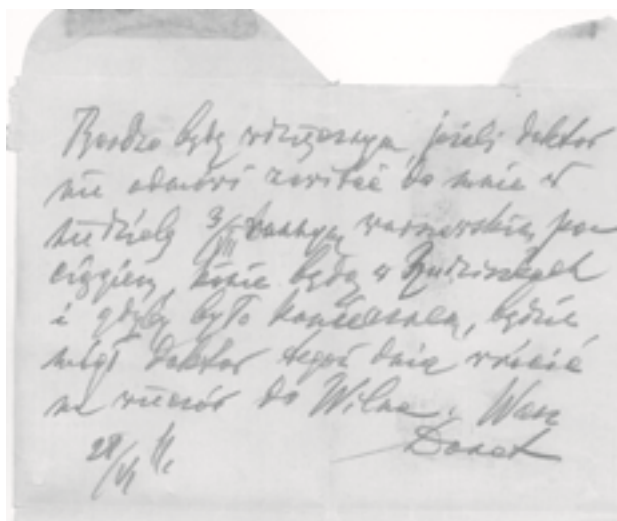 Bardzo będę wdzięcznym, jeżeli doktor
nie odmówi zawitać do mnie w
niedzielę 3/VII rannym warszawskim po-
ciągiem, konie będą w Rudziszkach
i gdyby było koniecznem, będzie
mógł doktor tegoż dnia wrócić
na wieczór do Wilna. Wasz
28/VI Donat